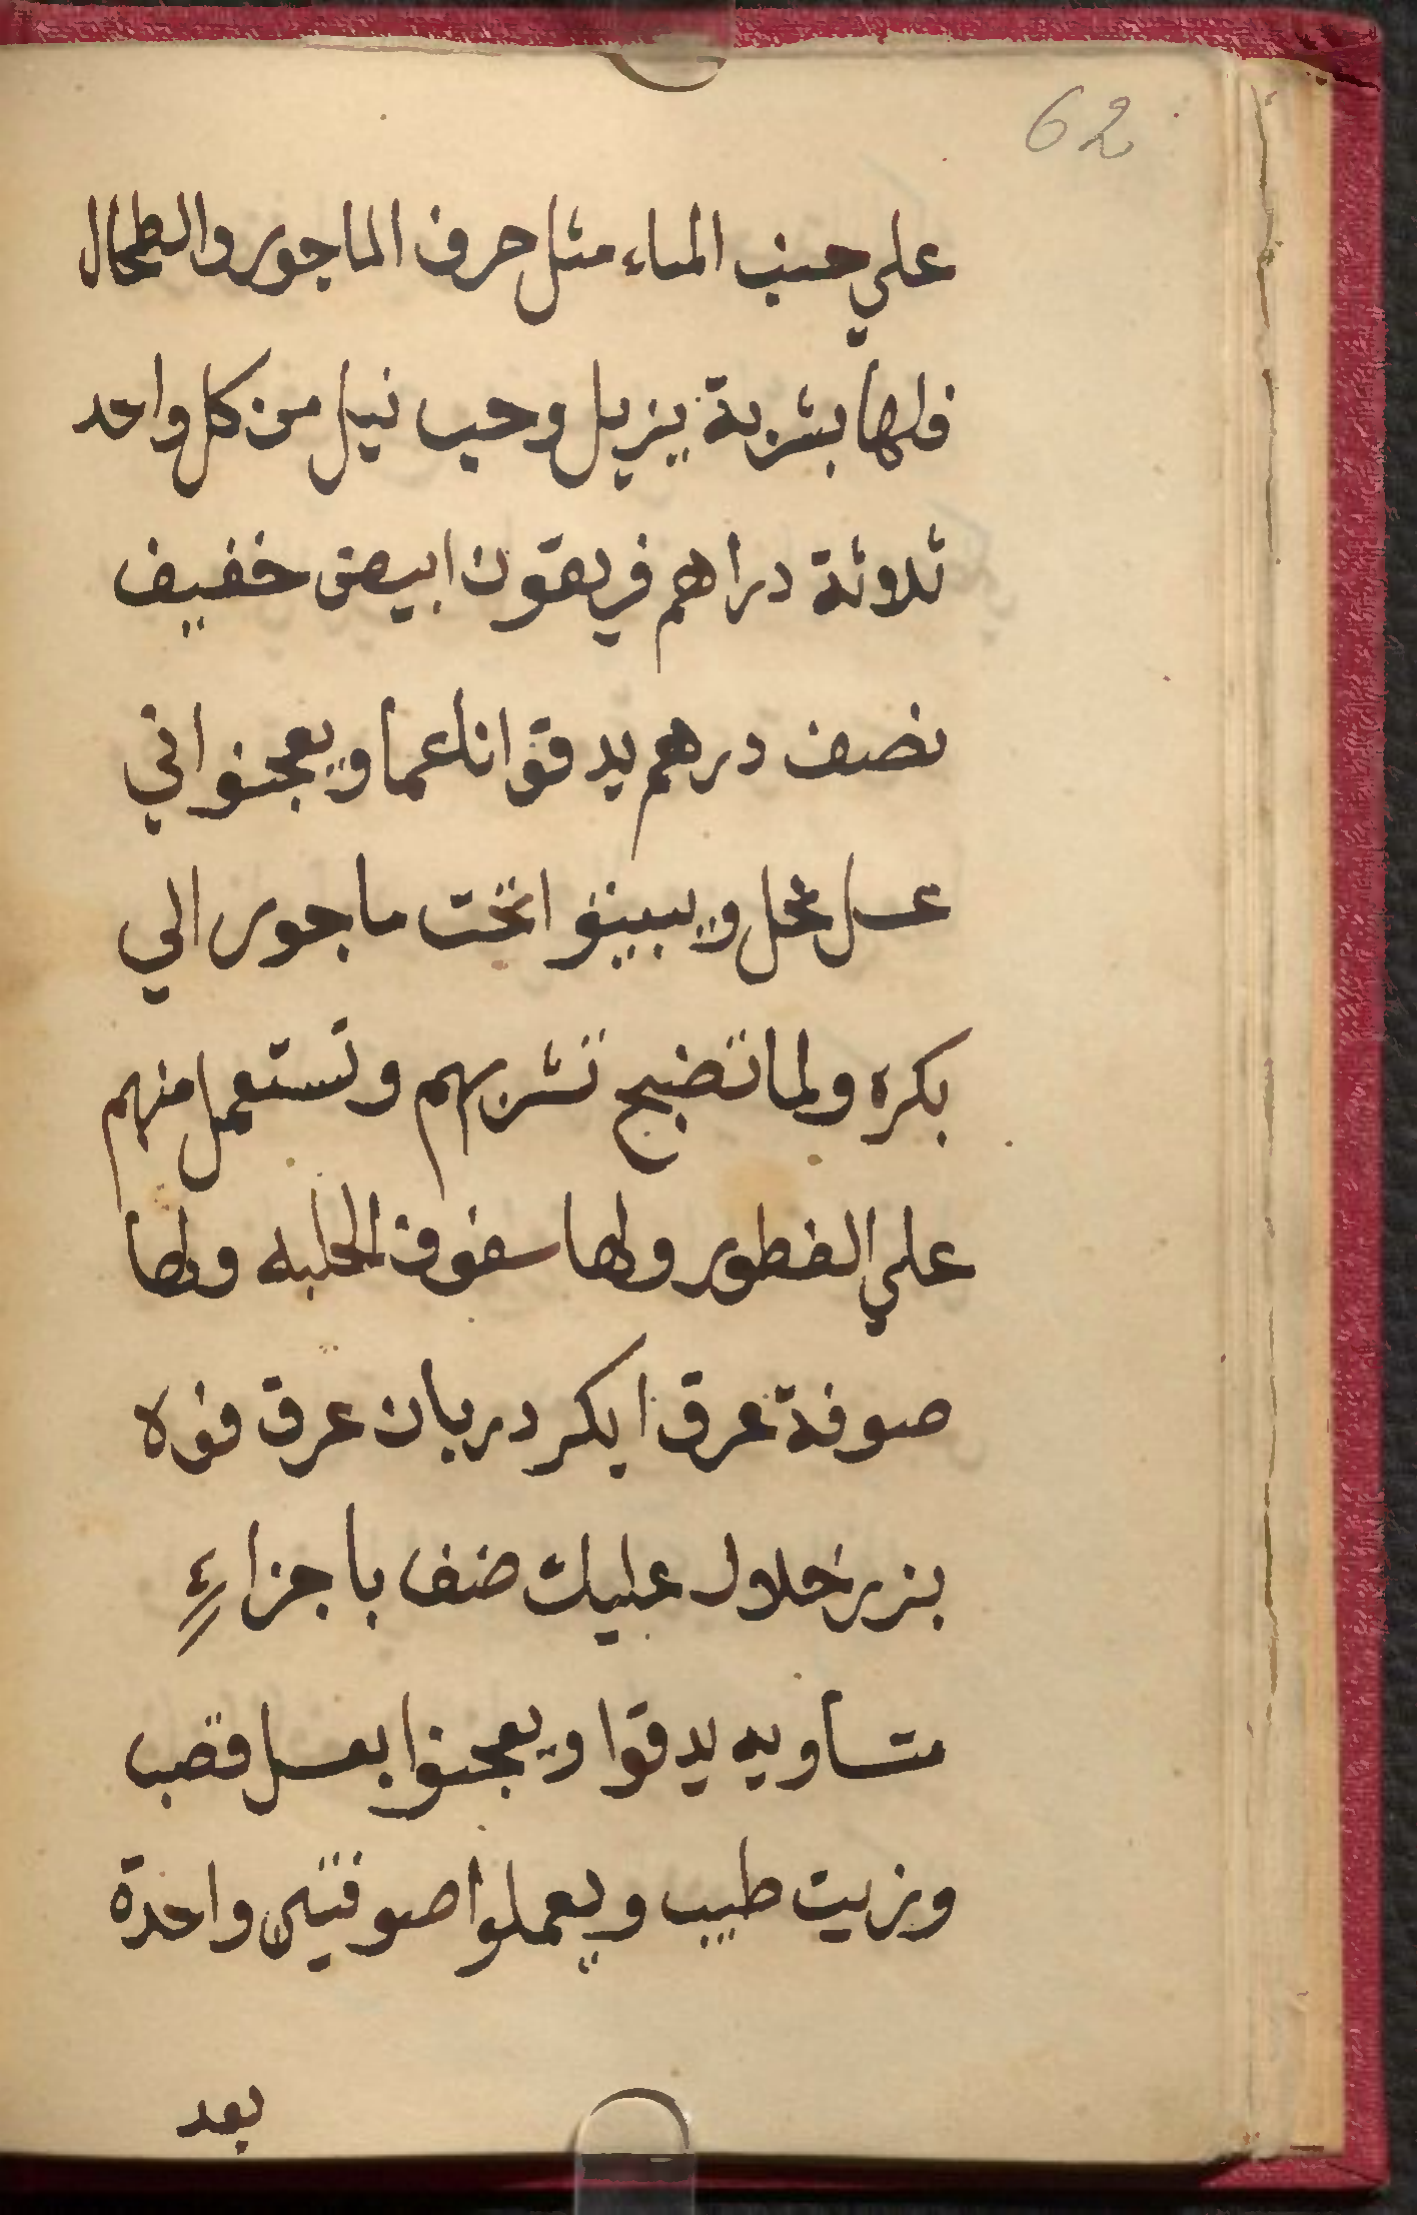 62
علي جنب الماء مثل حرف الماجور والطحال
فلها بشربة يزيل وحب نيل من كل واحد
ثلاثة دراهم فريقون ابيض خفيف
نصف درهم يدقوا ناعما ويعجنوا في
عسل نحل ويبيتوا تحت ماجور الي
بكره ولما تضبح تشربهم وتستعمل منهم
علي الفطور ولها سفوف الحلبه ولها
صوفة عرق ايكر دربان عرق فوه
بزر خلال عليك ضف باجزاءٍ
متساويه يدقوا ويعجنوا بعسل قصب
وزيت طيب ويعملوا صوفتين واحدة
بعد